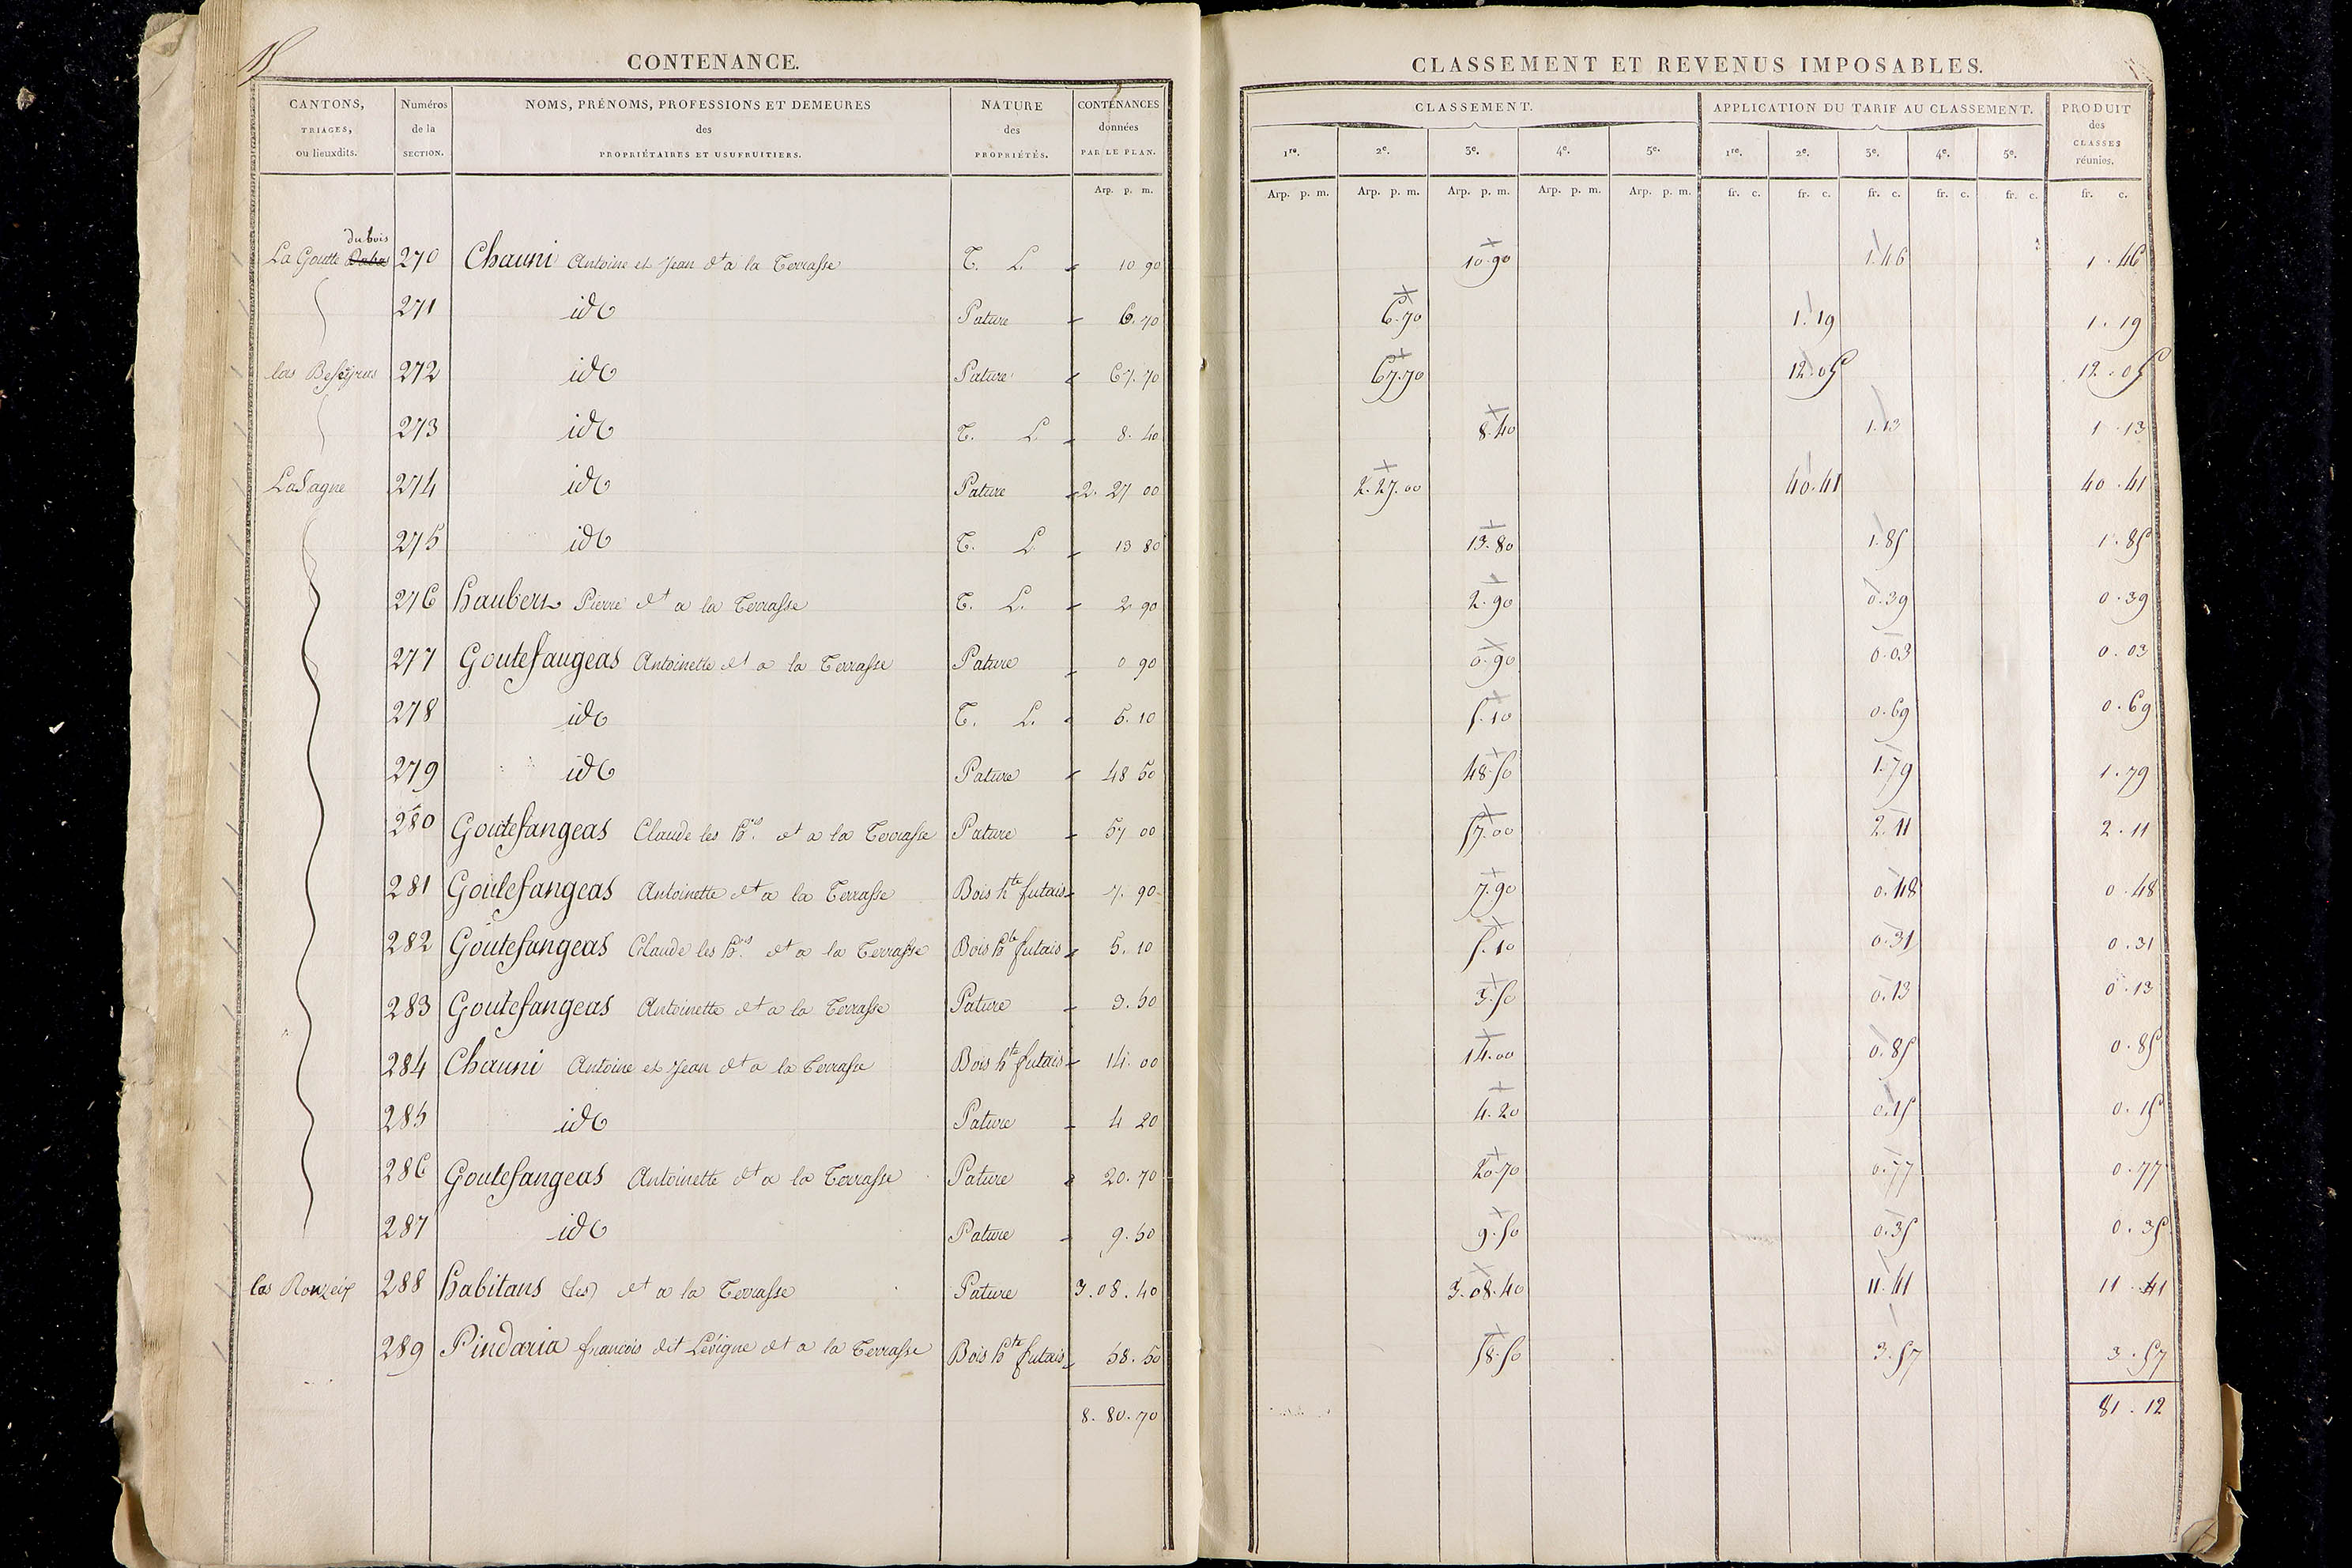 CONTENANCE.
CANTONS, TRIAGES, ou lieuxdits. Numéros de la SECTION. NOMS, PRÉNOMS, PROFESSIONS ET DEMEURES des PROPRIÉTAIRES ET USUFRUITIERS. NATURE des PROPRIÉTÉS. CONTENANCES données PAR LE PLAN.
Arp. p. m.
CLASSEMENT ET REVENUS IMPOSABLES.
CLASSEMENT. APPLICATION DU TARIF AU CLASSEMENT. PRODUIT des CLASSES réunies.
1re. 2e. 3e. 4e. 5e. 1re. 2e. 3e. 4e. 5e.
Arp. p. m. Arp. p. m. Arp. p. m. Arp. p. m. Arp. p. m. fr. c. fr. c. fr. c. fr. c. fr. c. fr. c.
dubois
La Goutte 270 Chauni Antoine et Jean dt a la Terrasse T. L. 10 90 10.90 1.46 1.46
271 id Pature 6.70 6.70 1.19 1.19
las 272 id Pature 67.70 67.70 12.05 12.05
273 id T. L 8.40 8.40 1.13 1.13
LaSagne 274 id Pature 2.27 00 2.27.00 40.41 40.41
275 id T. L. 13 80 13.80 1.85 1.85
276 Pierre dt a la Terrasse T. L. 2 90 2.90 0.39 0.39
277 Goutefangeas Antoinette dt a la Terrasse Pature 0 90 0.90 0.03 0.03
278 id T. L. 5.10 5.10 0.69 0.69
279 id Pature 48 50 48.50 1.79 1.79
280 Goutefangeas Claude les hrs. dt a la Terrasse Pature 57 00 57.00 2.11 2.11
281 Goutefangeas Antoinette dt a la Terrasse Bois hte futais 7.90 7.90 0.48 0.48
282 Goutefangeas Claude les hrs. dt a la Terrasse Bois hte futais 5.10 5.10 0.31 0.31
283 Goutefangeas Antoinette dt a la Terrasse Pature 3.50 3.50 0.13 0.13
284 Chauni Antoine et Jean dt a la Terrasse Bois hte futais 14.00 14.00 0.85 0.85
285 id Pature 4 20 4.20 0.15 0.15
286 Goutefangeas Antoinette dt a la Terrasse Pature 20.70 20.70 0.77 0.77
287 id Pature 9.50 9.50 0.35 0.35
las Ronzeix 288 habitans (les) dt a la Terrasse Pature 3.08.40 3.08.40 11.41 11.41
289 Pindaria francois dit Lévigne dt a la Terrasse Bois hte futais 58.50 58.50 3.57 3.57
8.80.70 81.12